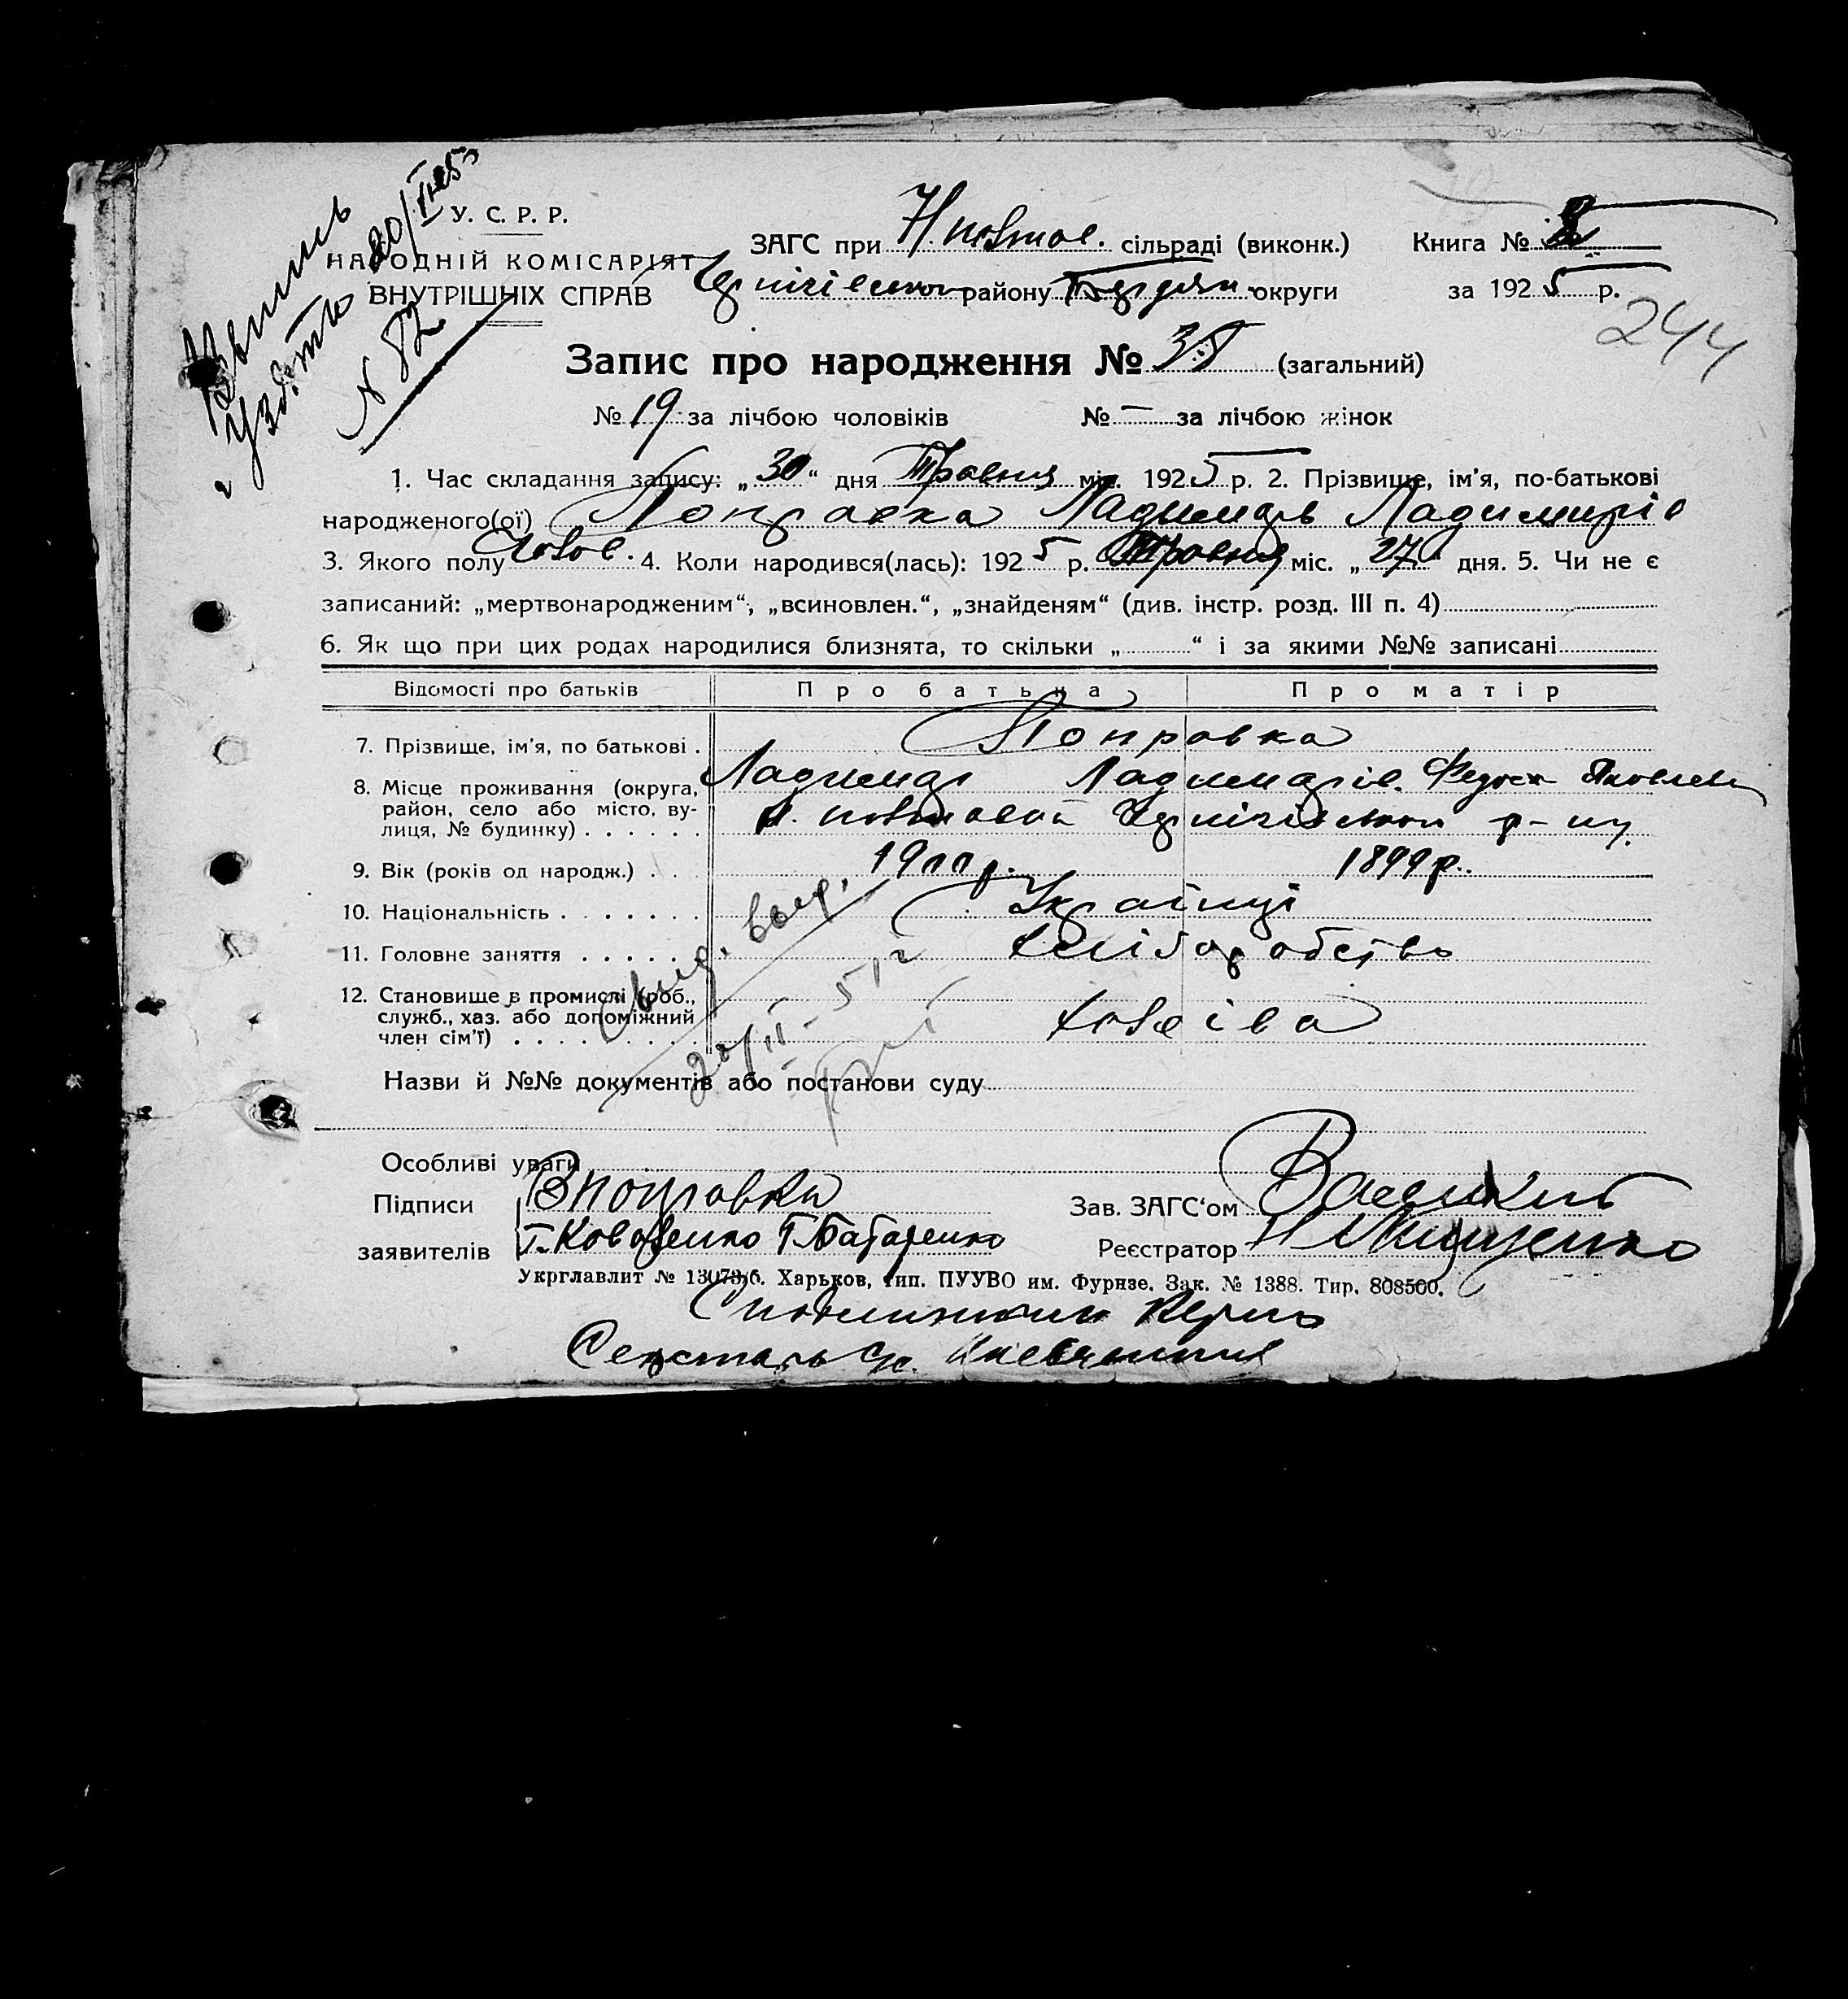 Выпись
У. С. Р. Р.
НАРОДНІЙ КОМІСАРІЯТ
ВНУТРІШНІХ СПРАВ
№ 82
ЗАГС при сільраді (виконк.) Книга №
району Бердян. округи за 1925 р.
244
Запис про народження № (загальний)
№ 19 за лічбою чоловіків № — за лічбою жінок
1. Час складання запису: „30“ дня Травня міс. 1925 р. 2. Прізвище, ім'я, по-батькові
народженого(ої) Поправка Ладимарь Ладимирів
3. Якого полу Чолов. 4. Коли народився(лась): 1925 р. Травня міс. „27“ дня. 5. Чи не є
записаний: „мертвонародженим“, „всиновлен.“, „знайденям“ (див. інстр. розд. III п. 4)
6. Як що при цих родах народилися близнята, то скільки „ “ і за якими №№ записані
Відомості про батьків Про батька Про матір
7. Прізвище, ім'я, по батькові . Поправка
8. Місце проживання (округа, Ладимар Ладимарів.
район, село або місто, ву-
лиця, № будинку) . . . . . . р-ну
9. Вік (років од народж.) . . . 1899 р.
10. Національність . . . . . . . Українці
11. Головне заняття . . . . . . хліборобство
12. Становище в промислі (роб.,
служб., хаз. або допоміжний
член сім'ї) . . . . . . . . . хозяіва
Свид. выд.
Назви й №№ документів або постанови суду
Особливі уваги
Підписи В Поправка Зав. ЗАГС'ом
заявителів Г. Коваленко Г. Батаренко Реєстратор
Укрглавлит № 13073/б. Харьков, тип. ПУУВО им. Фурнзе. Зак. № 1388. Тир. 808500.